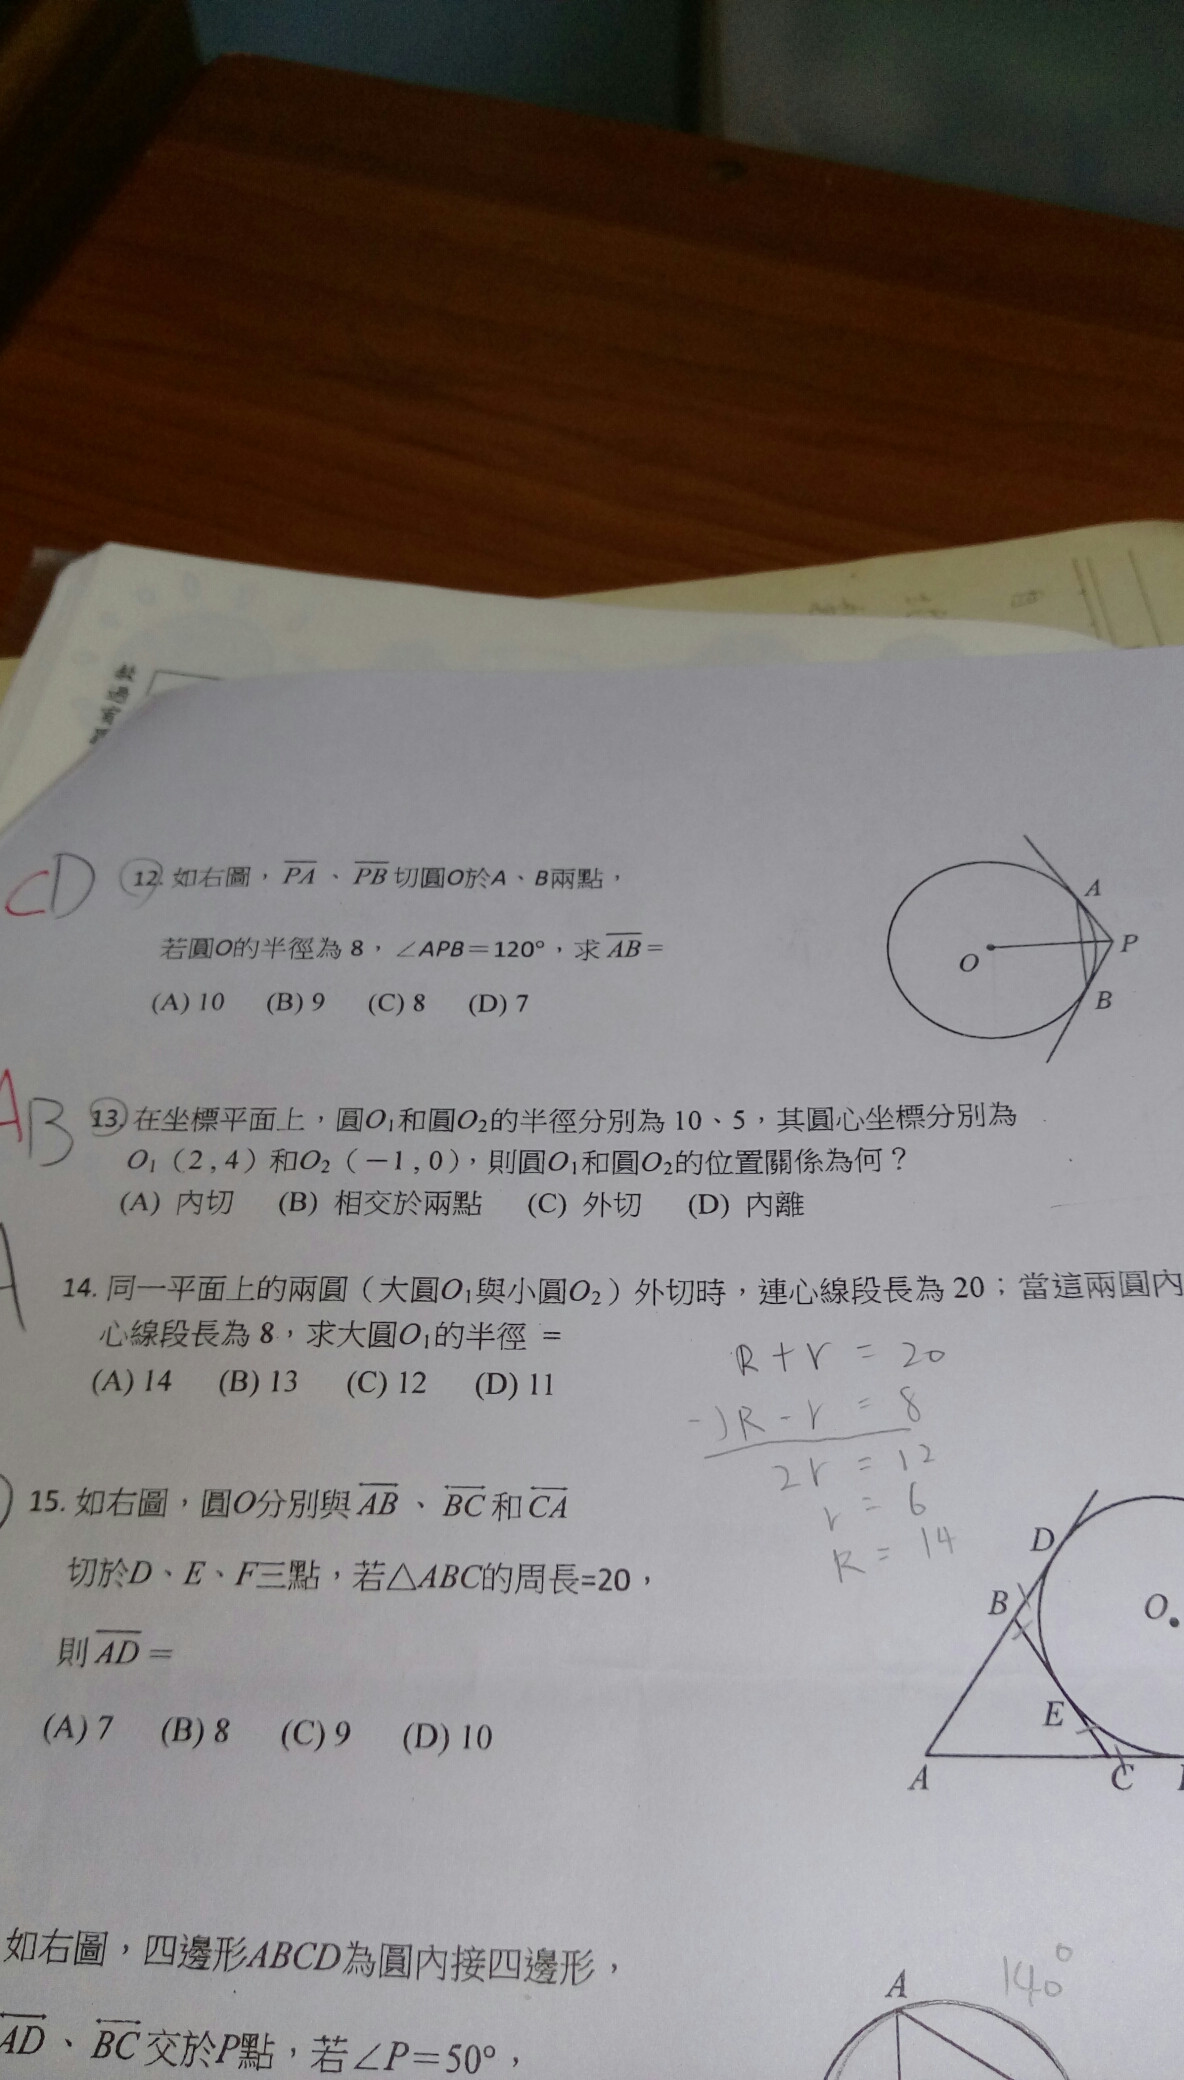 CD 12. 如右圖，PA、PB切圓O於A、B兩點，
若圓O的半徑為 8，∠APB＝120°，求 AB＝
(A) 10 (B) 9 (C) 8 (D) 7
A
P
O
B
AB 13. 在坐標平面上，圓O₁和圓O₂的半徑分別為 10、5，其圓心坐標分別為
O₁（2 , 4）和O₂（－1 , 0），則圓O₁和圓O₂的位置關係為何？
(A) 內切 (B) 相交於兩點 (C) 外切 (D) 內離
A 14. 同一平面上的兩圓（大圓O₁與小圓O₂）外切時，連心線段長為 20；當這兩圓內
心線段長為 8，求大圓O₁的半徑 =
(A) 14 (B) 13 (C) 12 (D) 11
R + r = 20
-) R - r = 8
2r = 12
r = 6
R = 14
15. 如右圖，圓O分別與 AB、BC 和 CA
切於D、E、F三點，若△ABC的周長=20，
則 AD＝
(A) 7 (B) 8 (C) 9 (D) 10
D
B
O
E
A
C
如右圖，四邊形ABCD為圓內接四邊形，
AD、BC 交於P點，若∠P＝50°，
A
140°